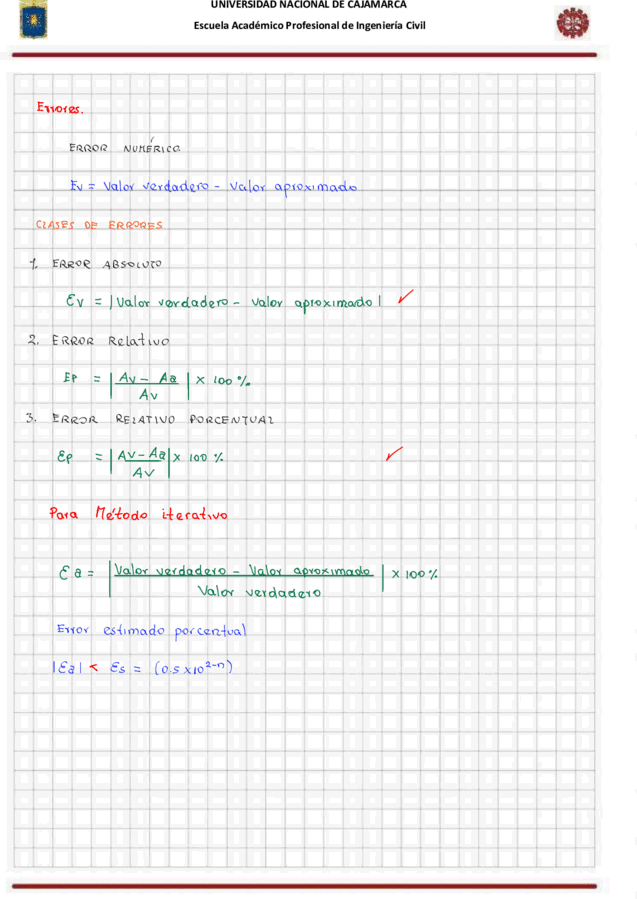 UNIVERSIDAD NACIONAL DE CAJAMARCA
Escuela Académico Profesional de Ingeniería Civil
Errores.
ERROR NUMÉRICO
Ev = Valor verdadero - Valor aproximado
CLASES DE ERRORES
1. ERROR ABSOLUTO
Ev = |Valor verdadero - Valor aproximado| ✓
2. ERROR Relativo
EP = |Av - Aa / Av| x 100 %
3. ERROR RELATIVO PORCENTUAL
Ep = |Av - Aa / Av| x 100 % ✓
Para Método iterativo
Ea = |Valor verdadero - Valor aproximado / Valor verdadero| x 100 %
Error estimado porcentual
|Ea| < Es = (0.5 x 10^2-n)